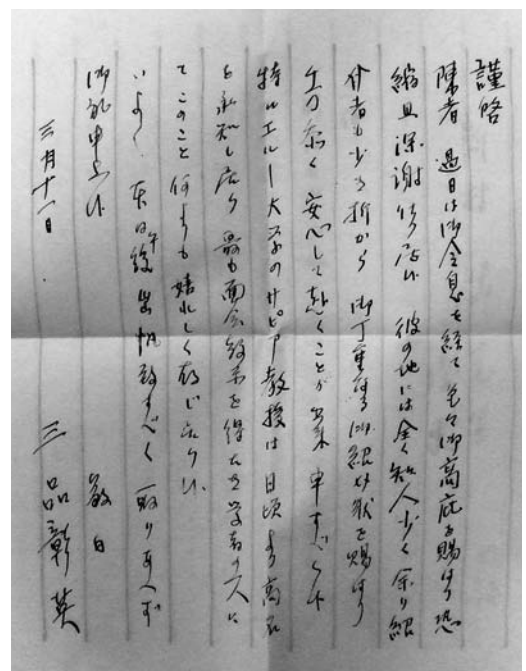 謹啓
陳者 過日は御令息を経て色々御高庇を賜はり恐
縮且深謝仕り居候 彼の地には全く知人少く 余り紹
介者も少き折から 御丁重なる御紹介状を賜はり
心から 安心して赴くことが出来申すべく候
特にエール大学のサピア教授は日頃より高名
を承知し居り 最も面会致し度き学者の一人に
て このこと何よりも嬉しく存じ居り候
いよいよ 本日午後出帆致すべく 取りあへず
御礼申上候 敬白
三月十一日 三品彰英